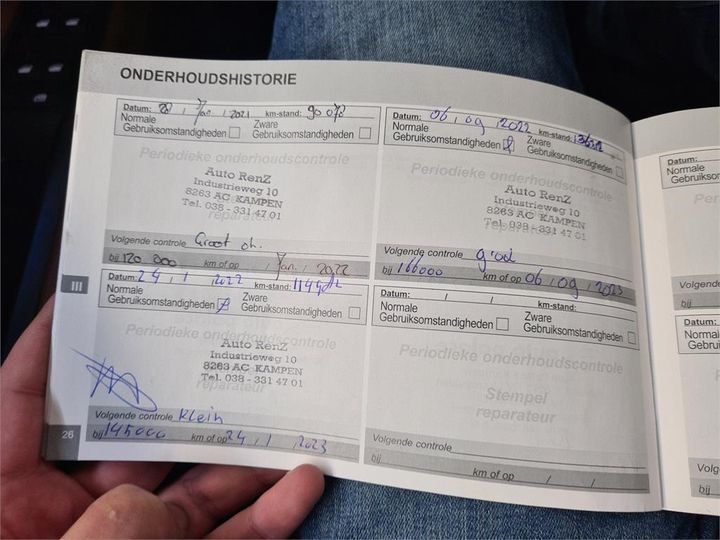 ONDERHOUDSHISTORIE
Datum: 28 / Jan. / 2021 km-stand: 90 078
Normale Gebruiksomstandigheden
Zware Gebruiksomstandigheden
Periodieke onderhoudscontrole
Auto RenZ
Industrieweg 10
8263 AC KAMPEN
Tel. 038 - 331 47 01
reparateur
Volgende controle Groot oh.
bij 120 000 km of op / Jan. / 2022
Datum: 24 / 1 / 2022 km-stand:
Normale Gebruiksomstandigheden
Zware Gebruiksomstandigheden
Periodieke onderhoudscontrole
Auto RenZ
Industrieweg 10
8263 AC KAMPEN
Tel. 038 - 331 47 01
reparateur
Volgende controle Klein
bij 145000 km of op 24 / 1 / 2023
Datum: 06 / 09 / 2022 km-stand:
Normale Gebruiksomstandigheden
Zware Gebruiksomstandigheden
Periodieke onderhoudscontrole
Auto RenZ
Industrieweg 10
8263 AC KAMPEN
Tel. 038 - 331 47 01
reparateur
Volgende controle
bij 166000 km of op 06 / 09 / 2023
Datum: / / km-stand:
Normale Gebruiksomstandigheden
Zware Gebruiksomstandigheden
Periodieke onderhoudscontrole
Stempel
reparateur
Volgende controle
bij km of op / /
III
26
Datum:
Normale
Gebruiksom
Volgende
bij
Datum:
Normale
Gebruik
bij